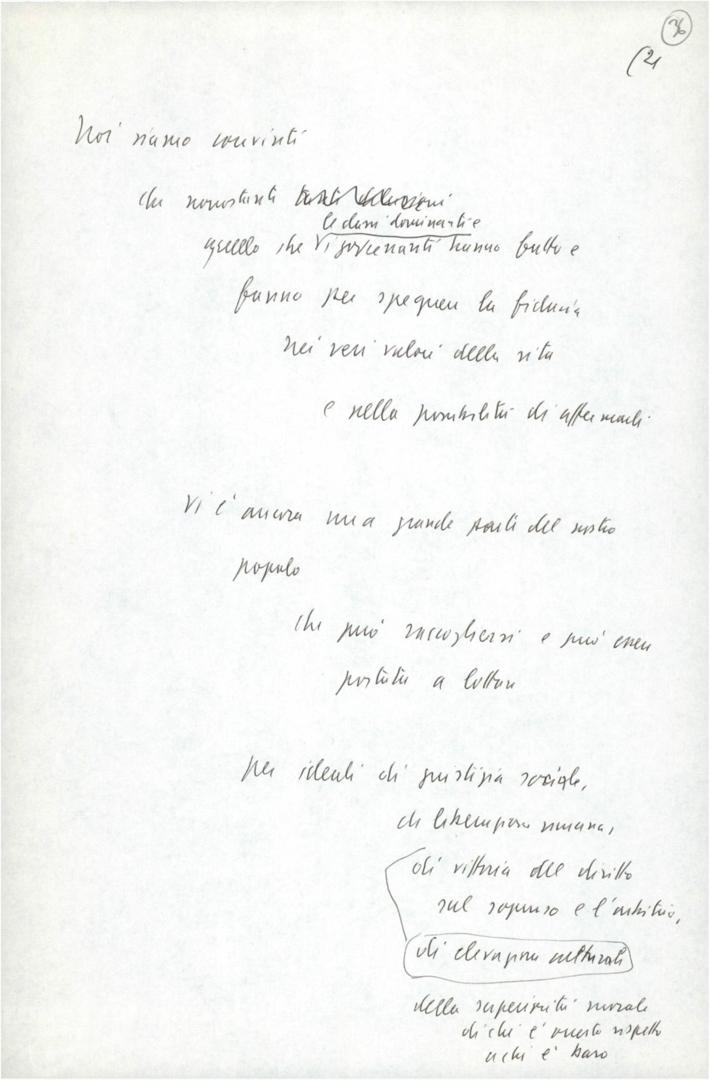 36
(21
Noi siamo convinti
che nonostante tante delusioni
le classi dominanti e
quello che i governanti hanno fatto e
fanno per spegnere la fiducia
nei veri valori della vita
e nella possibilità di affermarli
vi è ancora una grande parte del nostro
popolo
che può raccogliersi e può essere
portata a lottare
per ideali di giustizia sociale,
di liberazione umana,
di vittoria del diritto
sul sopruso e l'arbitrio,
di elevazione culturale
della superiorità morale
di chi è onesto rispetto
a chi è baro